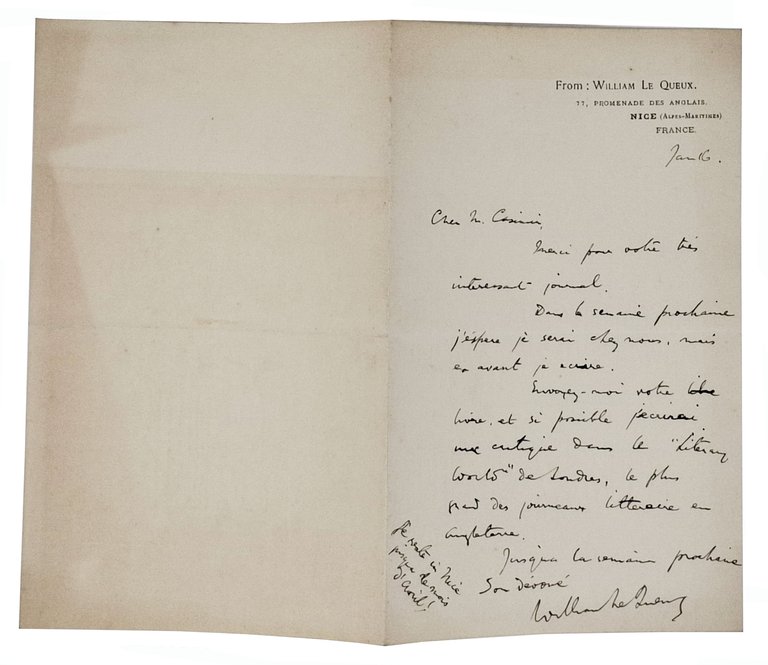 From: WILLIAM LE QUEUX.
77, PROMENADE DES ANGLAIS.
NICE (ALPES-MARITIMES)
FRANCE.
Jan 16.
Cher M. Casimir,
Merci pour votre très
interessant journal.
Dans la semaine prochaine
j'éspere je serai chez nous, mais
en avant je
Envoyez-moi votre
livre, et si possible j'ecrirai
une critique dans le "Literary
World" de Londres, le plus
grand des journeaux litteraire en
Angleterre.
Jusqua la semaine prochaine
Son dévoué
William Le Queux
Je reste in Nice
jusque de mois
d'Avril!